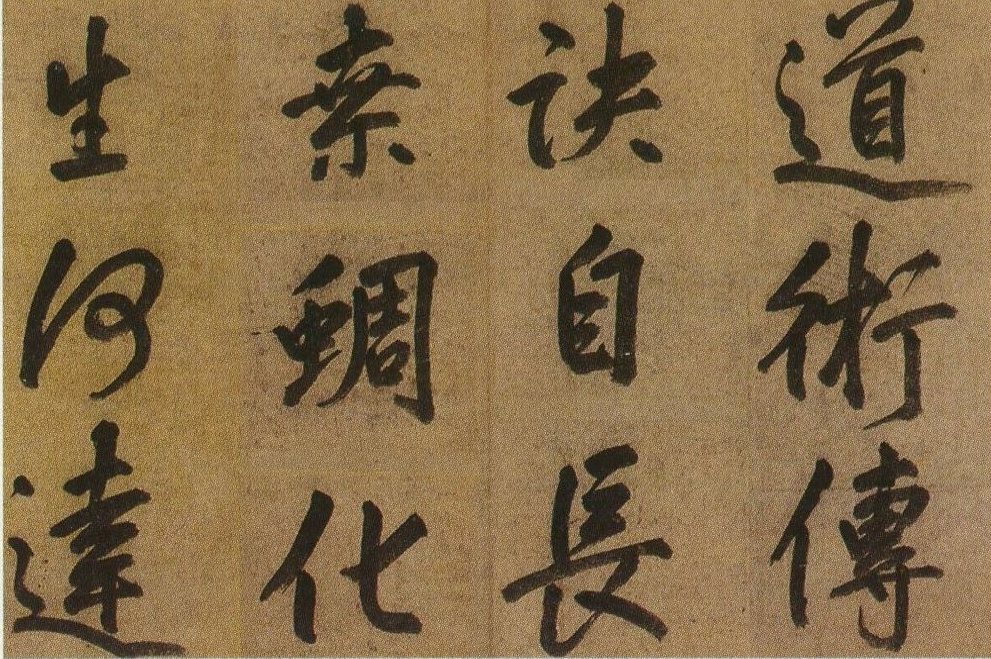 道術傳
訣自長
桒蜩化
生何達